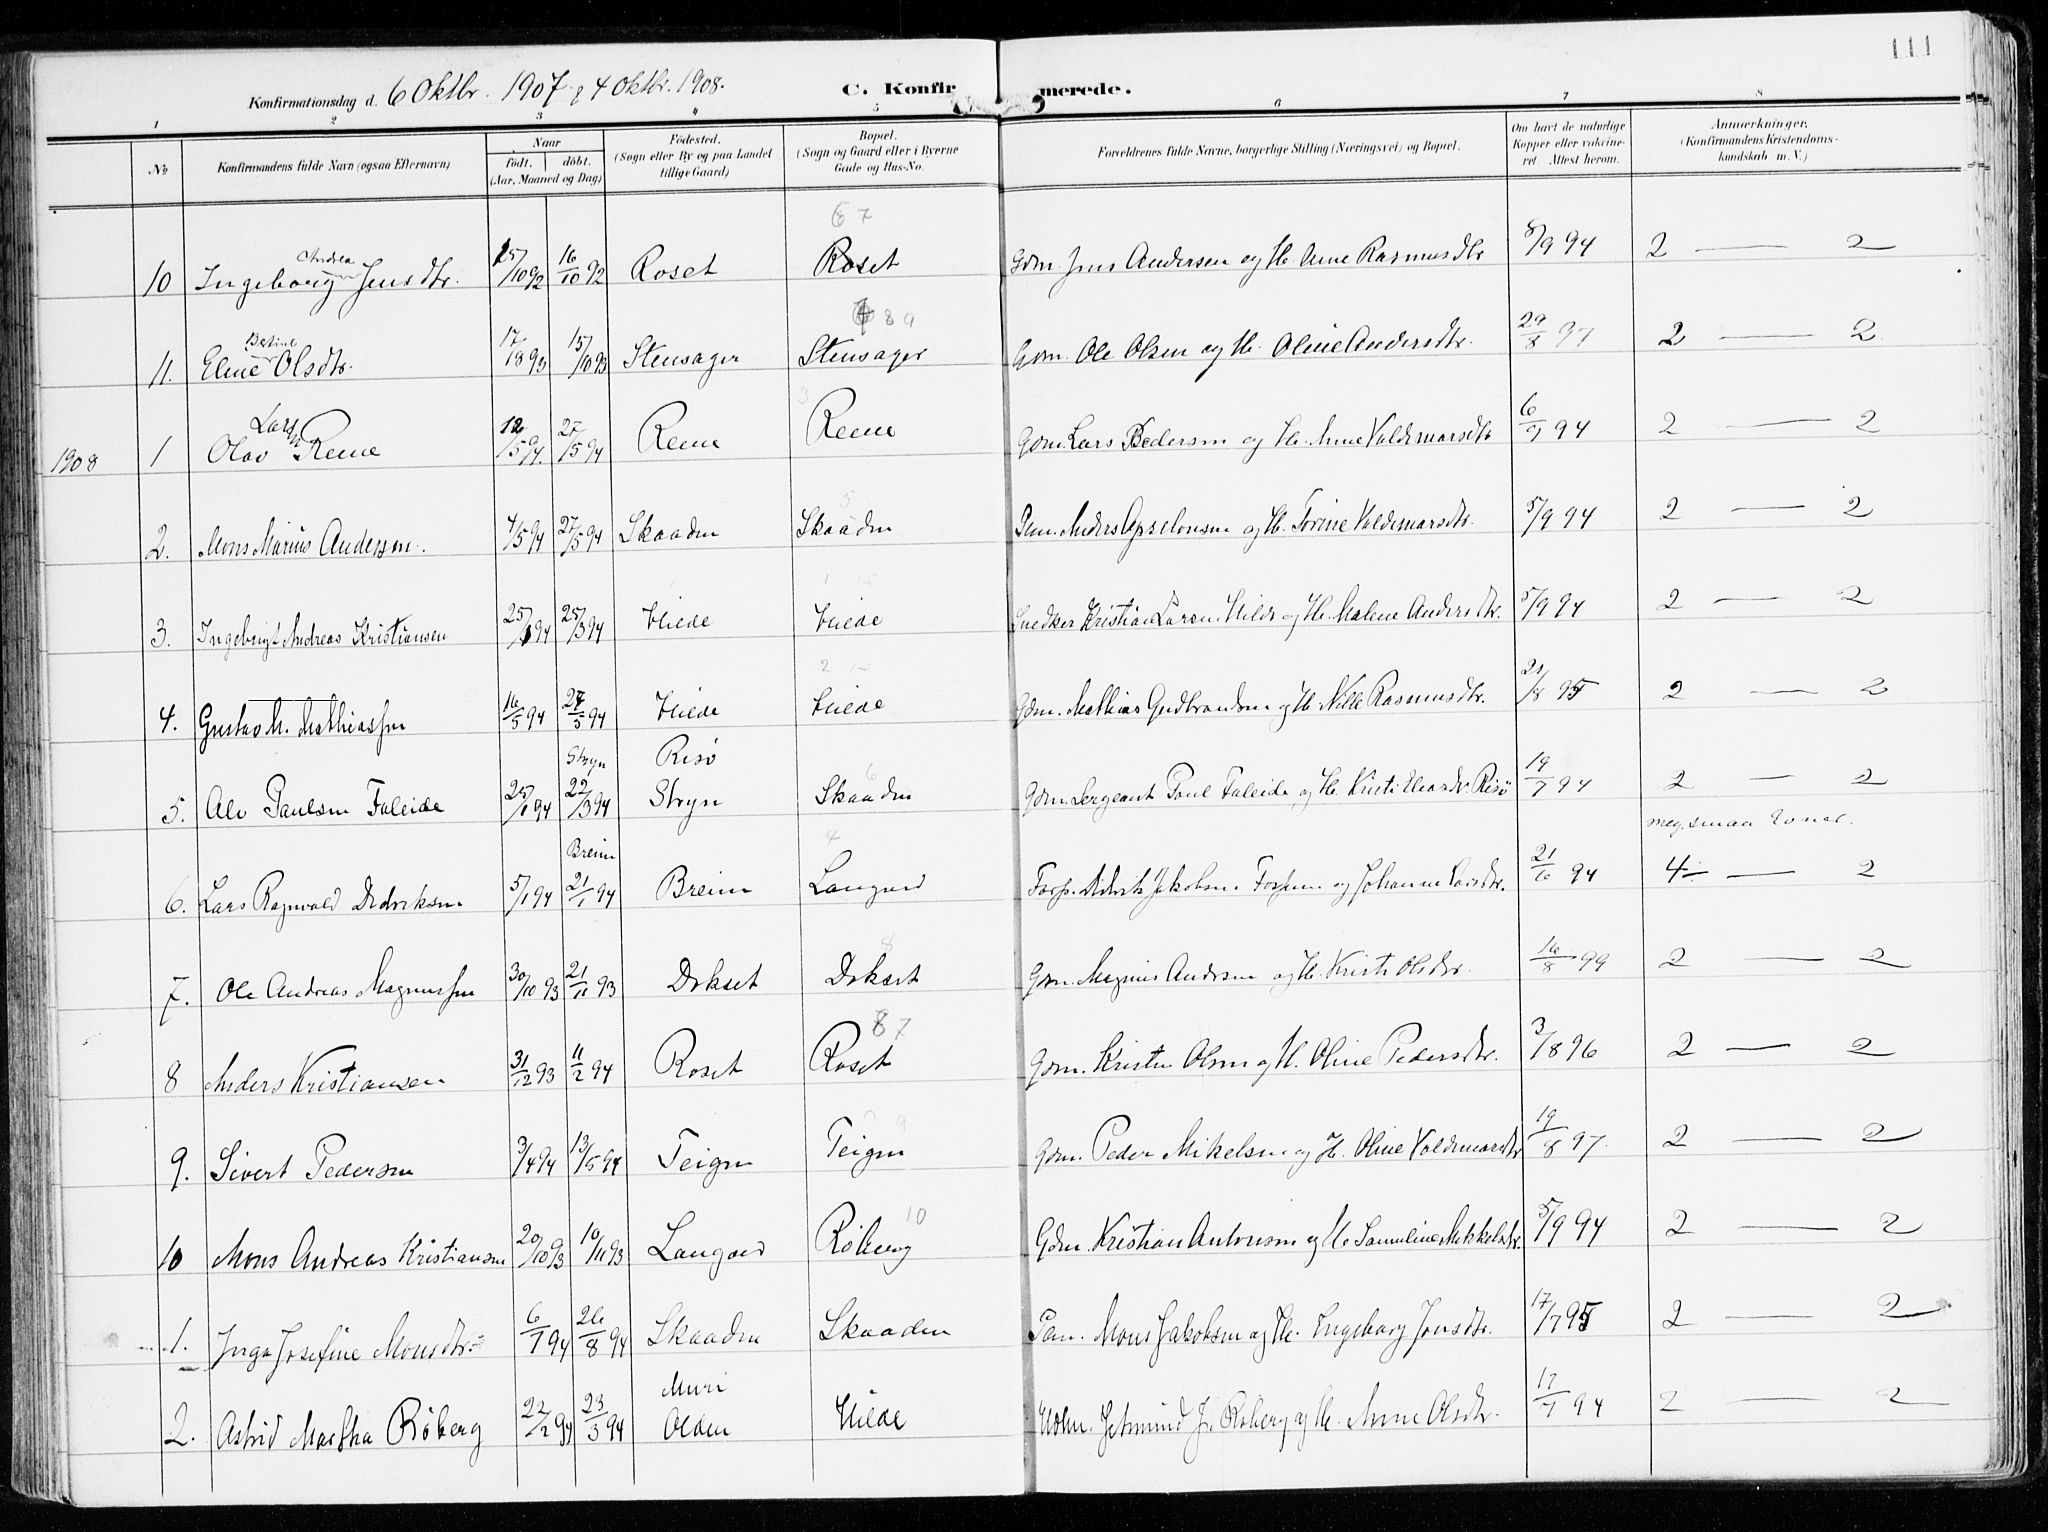 111
Konfirmationsdag d. 6 Oktbr. 1907 & 4 Oktbr. 1908. C. Konfirmerede.
1 2 3 4 5 6 7 8
No Konfirmandens fulde Navn (ogsaa Efternavn) Naar født. døbt. (Aar, Maaned og Dag) Fødested. (Sogn eller By og paa Landet tillige Gaard) Bopæl. (Sogn og Gaard eller i Byerne Gade og Hus-No. Forældrenes fulde Navne, borgerlige Stilling (Næringsvei) og Bopæl. Om havt de naturlige Kopper eller vaccineret Attest herom. Anmærkninger. (Konfirmandens Kristendomskundskab m. V.)
10 Ingeborg Andrea Jensdtr. 15/10 92 16/10 92 Roset Roset Gdm. Jens Andersen og H. Anne Rasmusdtr 8/9 94 2 — 2
11. Eline Betine Olsdtr. 17/8 93 15/10 93 Stensager Stensager Gdm. Ole Olsen og H. Oline Andersdtr. 29/8 97 2 — 2
1908 1 Olav Larsn Reme 12/5 94. 27/5 94 Reme Reme Gdm. Lars Pedersen og H. Anne Valdemarsdtr 6/9 94 2 — 2
2. Mons Marius Anderssen. 4/5 94 27/5 94 Skaaden Skaaden Anders og H. Torine Valdemarsdtr. 5/9 94 2 — 2
3. Ingebrigt Andreas Kristiansen 25/1 94 25/3 94 Hilde Hilde Snedker Kristian Larsen Hilde og H. Malene Andersdtr. 5/9 94 2 — 2
4. Gustav M. Mathiassen 16/5 94 27/5 94 Hilde Hilde Gdm. Mathias Gudbrandsen og H. Nille Rasmusdtr. 21/8 95 2 — 2
5. Alv Paulsen Faleide 25/1 94 Stryn 22/3 94 Risö Stryn Skaaden Gdm. Sergeant Paul Faleide og H. Kristi Risö 19/7 94 2 — 2
6. Lars Ragnvald Didriksen 5/1 94 Breim 21/1 94 Breim Langvd Didrik Jakobsen og Johanne Larsdtr. 21/6 94 meg. smaa evner. 4 — 2
7. Ole Andreas Magnussen 30/10 93 21/11 93 Dokset Dokset Gdm. Magnus Andersen og H. Kristi Olsdtr. 16/8 99 2 — 2
8 Anders Kristiansen 31/12 93 11/2 94 Roset Roset Gdm. Kristen Olsen og H. Oline Pedersdtr. 3/8 96 2 — 2
9. Sivert Pedersen 3/4 94 13/5 94 Teigen Teigen Gdm. Peder Mikelsen og H. Oline Valdemarsdtr 19/8 97. 2 — 2
10 Mons Andreas Kristiansen 20/10 93 10/11 93 Langvd Röberg Gdm. Kristian Antonsen og H. Samuline Mikkelsdtr. 5/9 94 2 — 2
1. Inga Josefine Monsdtr. 6/7 94 26/8 94 Skaaden Skaaden Mons Jakobsen og H. Ingeborg Jensdtr. 17/7 95 2 — 2
2. Astrid Martha Röberg 22/2 94 23/3 94 Muri Olden Hilde Jetmund J. Röberg og H. Anne Olsdtr. 17/7 94 2 — 2